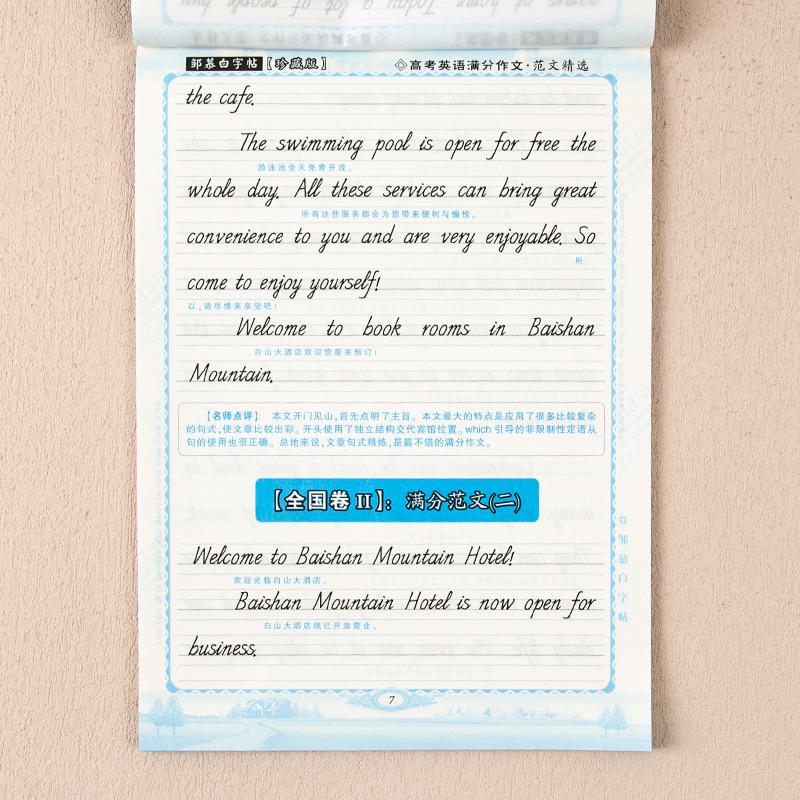 games at home. Today a lot of people buy
邹慕白字帖【珍藏版】 ◇高考英语满分作文·范文精选
the cafe.
The swimming pool is open for free the
游泳池全天免费开放。
whole day. All these services can bring great
所有这些服务都会为您带来便利与愉悦。
convenience to you and are very enjoyable. So
所
come to enjoy yourself!
以,请尽情来享受吧!
Welcome to book rooms in Baishan
白山大酒店欢迎您前来预订!
Mountain.
【名师点评】: 本文开门见山,首先点明了主旨。本文最大的特点是应用了很多比较复杂
的句式,使文章比较出彩。开头使用了独立结构交代宾馆位置。which 引导的非限制性定语从
句的使用也很正确。总地来说,文章句式精炼,是篇不错的满分作文。
【全国卷 II】: 满分范文(二)
Welcome to Baishan Mountain Hotel!
欢迎光临白山大酒店。
Baishan Mountain Hotel is now open for
白山大酒店现已开放营业。
business.
7
邹慕白字帖